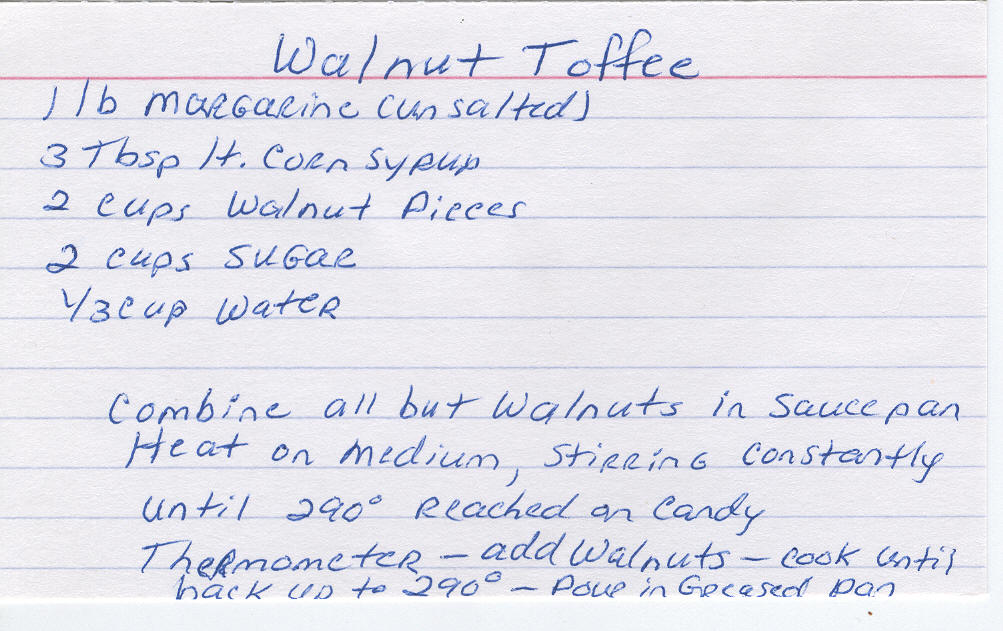 Walnut Toffee
1 lb MARGARine (unsalted)
3 Tbsp lt. Corn Syrup
2 cups Walnut Pieces
2 cups SUGAR
1/3 cup Water
Combine all but Walnuts in Saucepan
Heat on Medium, Stirring Constantly
until 290° Reached on Candy
Thermometer – add Walnuts – cook until
back up to 290° – Pour in Greased pan